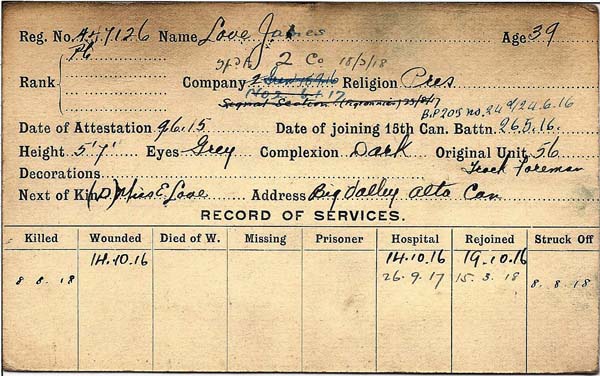 Reg. No. 447126 Name Love James Age 39
Pte
2 Co 18/3/18
Rank Company 2 Religion Pres
No 2 6.1.17
Signal Section 23/8/17 B.P 205 no. 24 d/24.6.16
Date of Attestation 9.6.15 Date of joining 15th Can. Battn. 26.5.16.
Height 5'7" Eyes Grey Complexion Dark Original Unit 56
Decorations Track Foreman
Next of Kin (D) Miss E. Love Address Big Valley Alta Can
RECORD OF SERVICES.
Killed Wounded Died of W. Missing Prisoner Hospital Rejoined Struck Off
14.10.16 14.10.16 19.10.16
8.8.18 26.9.17 15.3.18 8.8.18